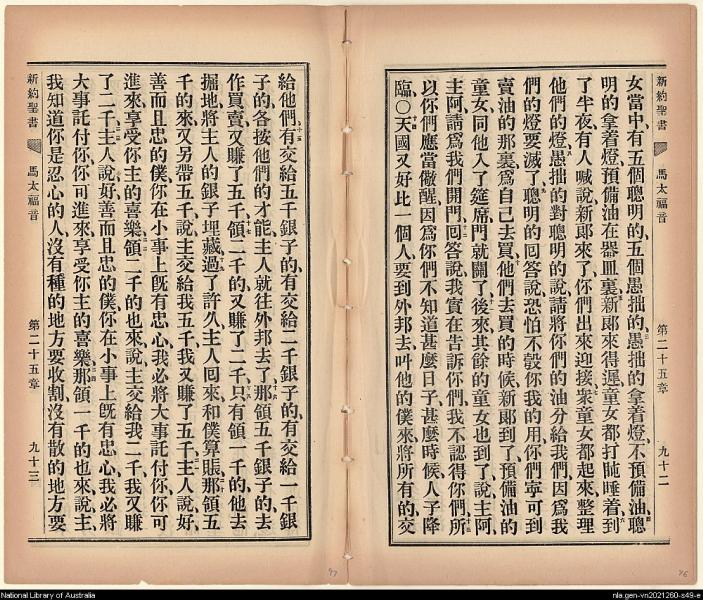 新約聖書 馬太福音 第二十五章 九十二
女當中有五個聰明的、五個愚拙的、愚拙的拿着燈、不預備油、聰
明的拿着燈、預備油在器皿裏、新郞來得遲、童女都打盹睡着、到
了半夜有人喊說、新郞來了、你們出來迎接、衆童女都起來整理
他們的燈、愚拙的對聰明的說、請將你們的油分給我們、因爲我
們的燈要滅了、聰明的回答說、恐怕不彀你我的用、你們寧可到
賣油的那裏爲自己去買、他們去買的時候新郞到了、預備油的
童女同他入了筵席、門就關了、後來其餘的童女也到了、說、主阿、
主阿、請爲我們開門、回答說、我實在告訴你們、我不認得你們、所
以你們應當儆醒、因爲你們不知道甚麼日子、甚麼時候、人子降
臨、〇天國又好比一個人、要到外邦去、叫他的僕來、將所有的交
給他們、有交給五千銀子的、有交給二千銀子的、有交給一千銀
子的、各按他們的才能、主人就往外邦去了、那領五千銀子的、去
作買賣、又賺了五千、領二千的又賺了二千、只有領一千的、他去
掘地、將主人的銀子埋藏、過了許久、主人回來、和僕算賬、那領五
千的來、又另帶五千、說、主交給我五千、我又賺了五千、主人說、好、
善而且忠的僕、你在小事上旣有忠心、我必將大事託付你、你可
進來享受你主的喜樂、領二千的也來、說、主交給我二千、我又賺
了二千、主人說、好、善而且忠的僕、你在小事上旣有忠心、我必將
大事託付你、你可進來享受你主的喜樂、那領一千的也來、說、主、
我知道你是忍心的人、沒有種的地方要收割、沒有散的地方要
新約聖書 馬太福音 第二十五章 九十三
National Library of Australia
nla.gen-vn2021260-s49-e